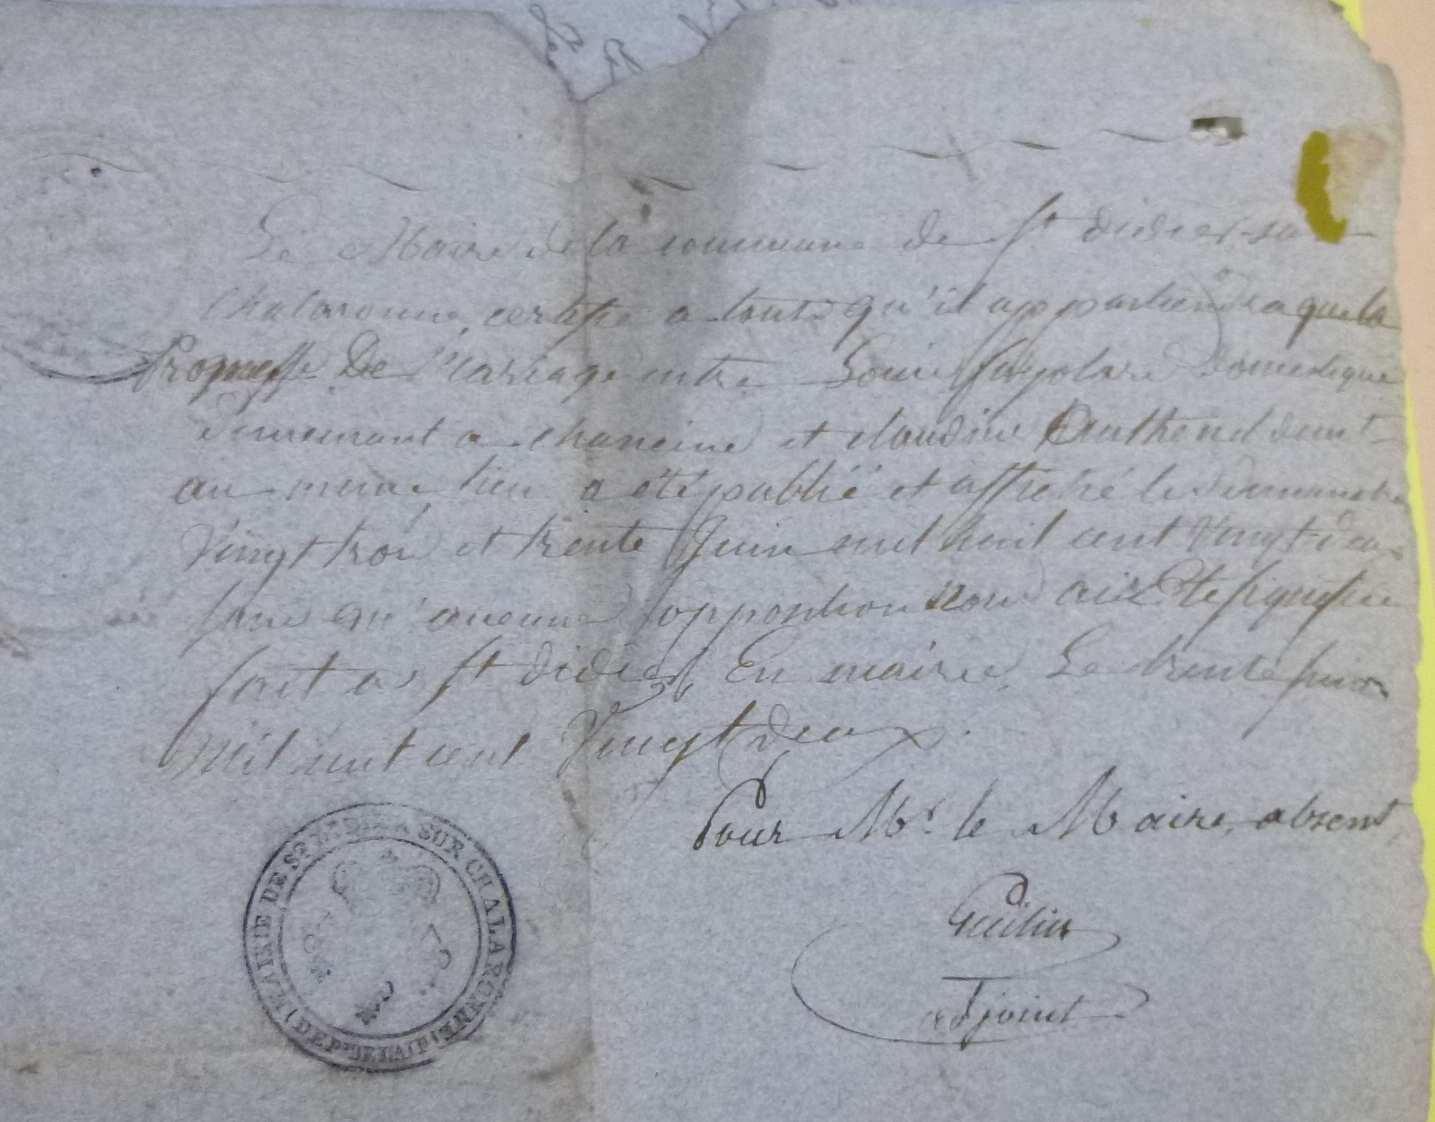 Le Maire de la commune de St didier-sur
Chalaronne, certifie a touts qu'il appartiendra que la
Promesse De Mariage entre Louis domestique
demeurant a chaneins et claudine demt
au meme lieu a été publié et affiché les dimanche
Vingt troi et trente Juin mil huit cent Vingt deux
sans qu'aucune opposition nou aiz été signifiée
fait a St didier En mairie Le trente juin
Mil huit cent Vingt deux.
Pour Mr. le Maire, absent,
adjoint
MAIRIE DE ST DIDIER SUR CHALARONNE (DEPT DE L'AIN)